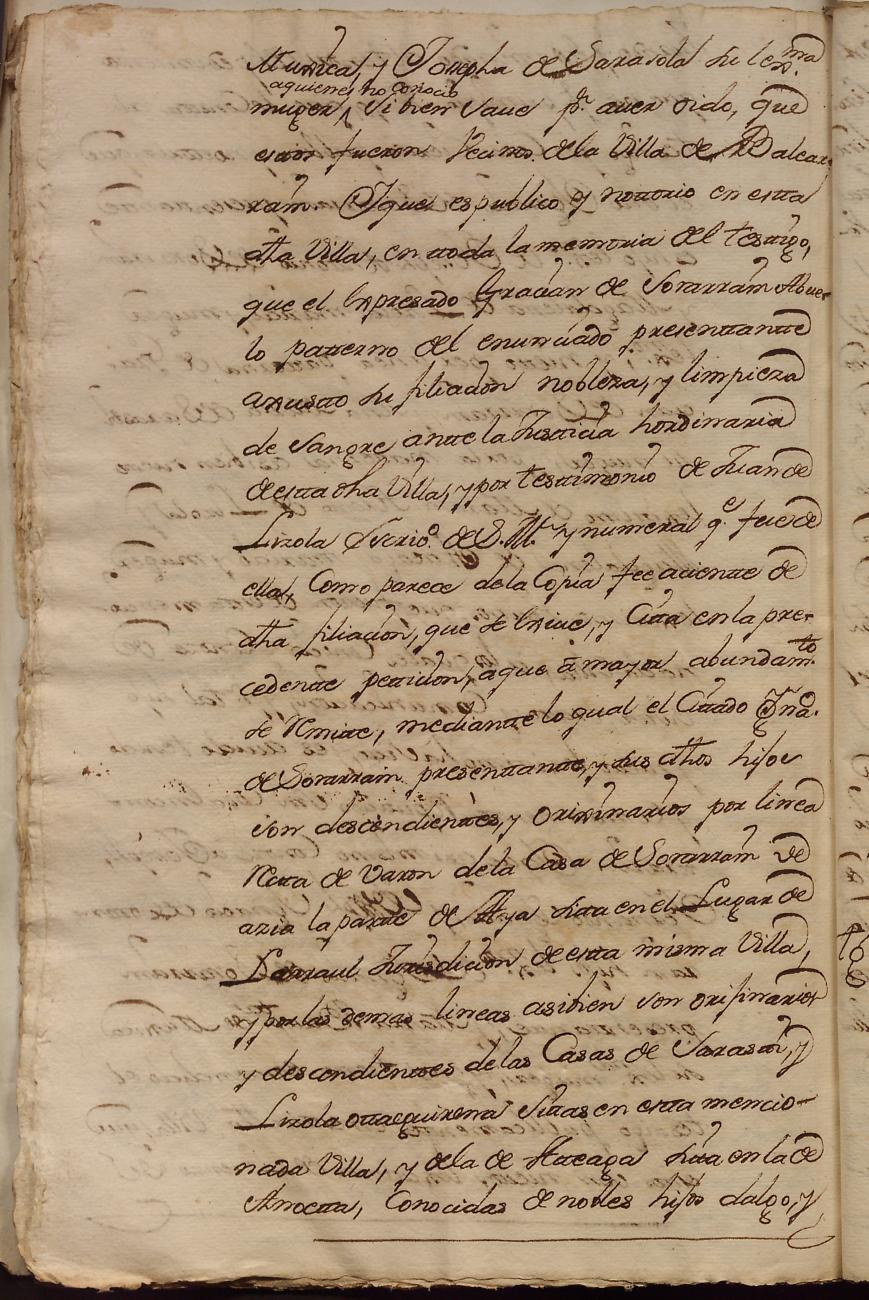 Muxica, y Josepha de Sarasola su lexma
aquienes no conocio
muger, si bien save pr. aver oido, que
estos fueron Vecinos de la Villa de Balear-
rain. Y que es publico y notorio en esta
dha Villa, en toda la memoria del testigo,
que el expresado Gracian de Sorarrain Abue-
lo patterno del enunciado presenttante
axusto su filiacion nobleza, y limpieza
de Sangre ante la Justicia hordinaria
de esta dha Villa, y por testimonio de Juan de
Lizola Escrio. de S. M. y numeral qe. fue de
ella, Como parece de la Copia feeaciente de
dha filiacion, que se exive, y Cita en la pre-
cedente peticion, aque a mayor abundamto.
se Remite, mediante lo qual el Citado Ygno.
de Sorarrain presenttante, y sus dhos hijos
son descendientes, y orixinarios por linea
Recta de Varon de la Casa de Sorarrain de
azia la parte de Aya sita en el Lugar de
Larraul Jurisdicion de esta misma Villa,
y por las demas lineas asibien son orijinarios
y descendientes de las Casas de Sarasain, y
Lizola sitas en esta mencio-
nada Villa, y de la de Ateaga sita en la de
Anoeta, Conocidas de nobles hijos dalgo, y